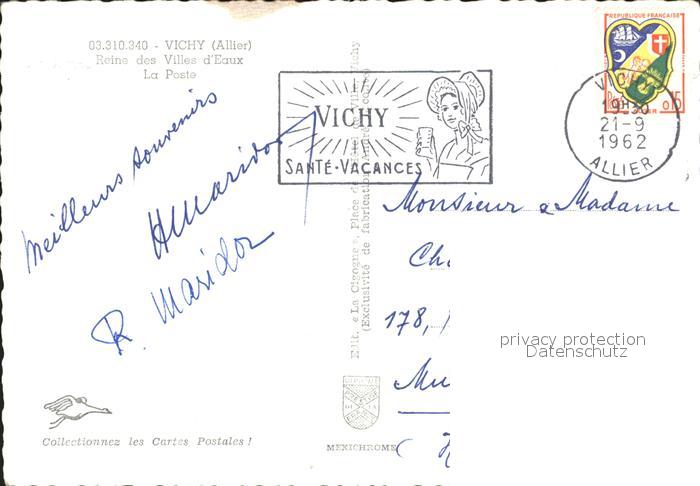 03.310.340 - VICHY (Allier)
Reine des Villes d'Eaux
La Poste
Meilleurs souvenirs
HMaridor
R. Maridor
Collectionnez les Cartes Postales !
Edit. « La Cigogne », Place de l'Hôtel de Ville, Vichy
(Exclusivité de fabrication
MEXICHROME
VICHY
SANTÉ-VACANCES
REPUBLIQUE FRANÇAISE
0,15
ALGER
VICHY
19H
21-9
1962
ALLIER
Monsieur & Madame
Ch
178,
Mu
privacy protection
Datenschutz